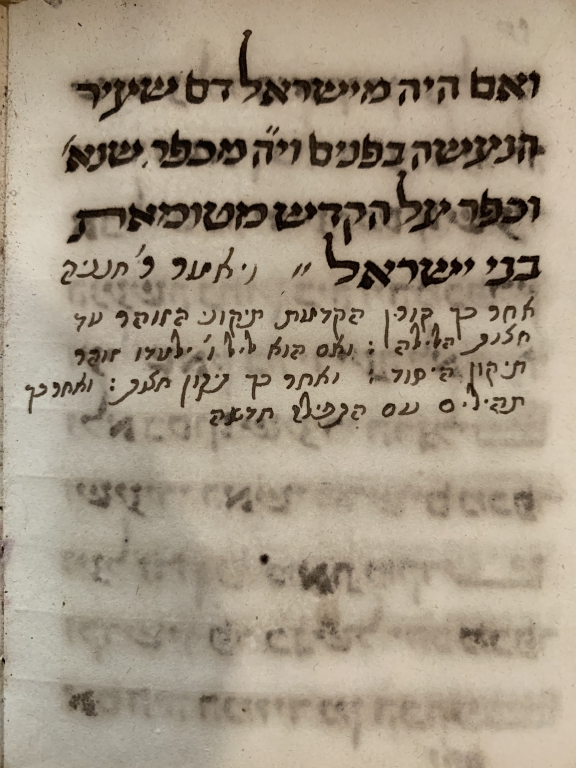 ואם היה מישראל דם שעיר
הנעשה בפנים וי״ה מכפר, שנא׳
וכפר על הקדש מטומאת
בני ישראל ״ ויאמר ר׳ חנניה
אחר כך קורין הקדמת תיקוני הזוהר עד
חצות הלילה : ואם הוא ליל ו׳ ילמדו זוהר
תיקון היסוד : ואחר כך תיקון חצות : ואחר כך
תהילים עם הכפילה חדשה